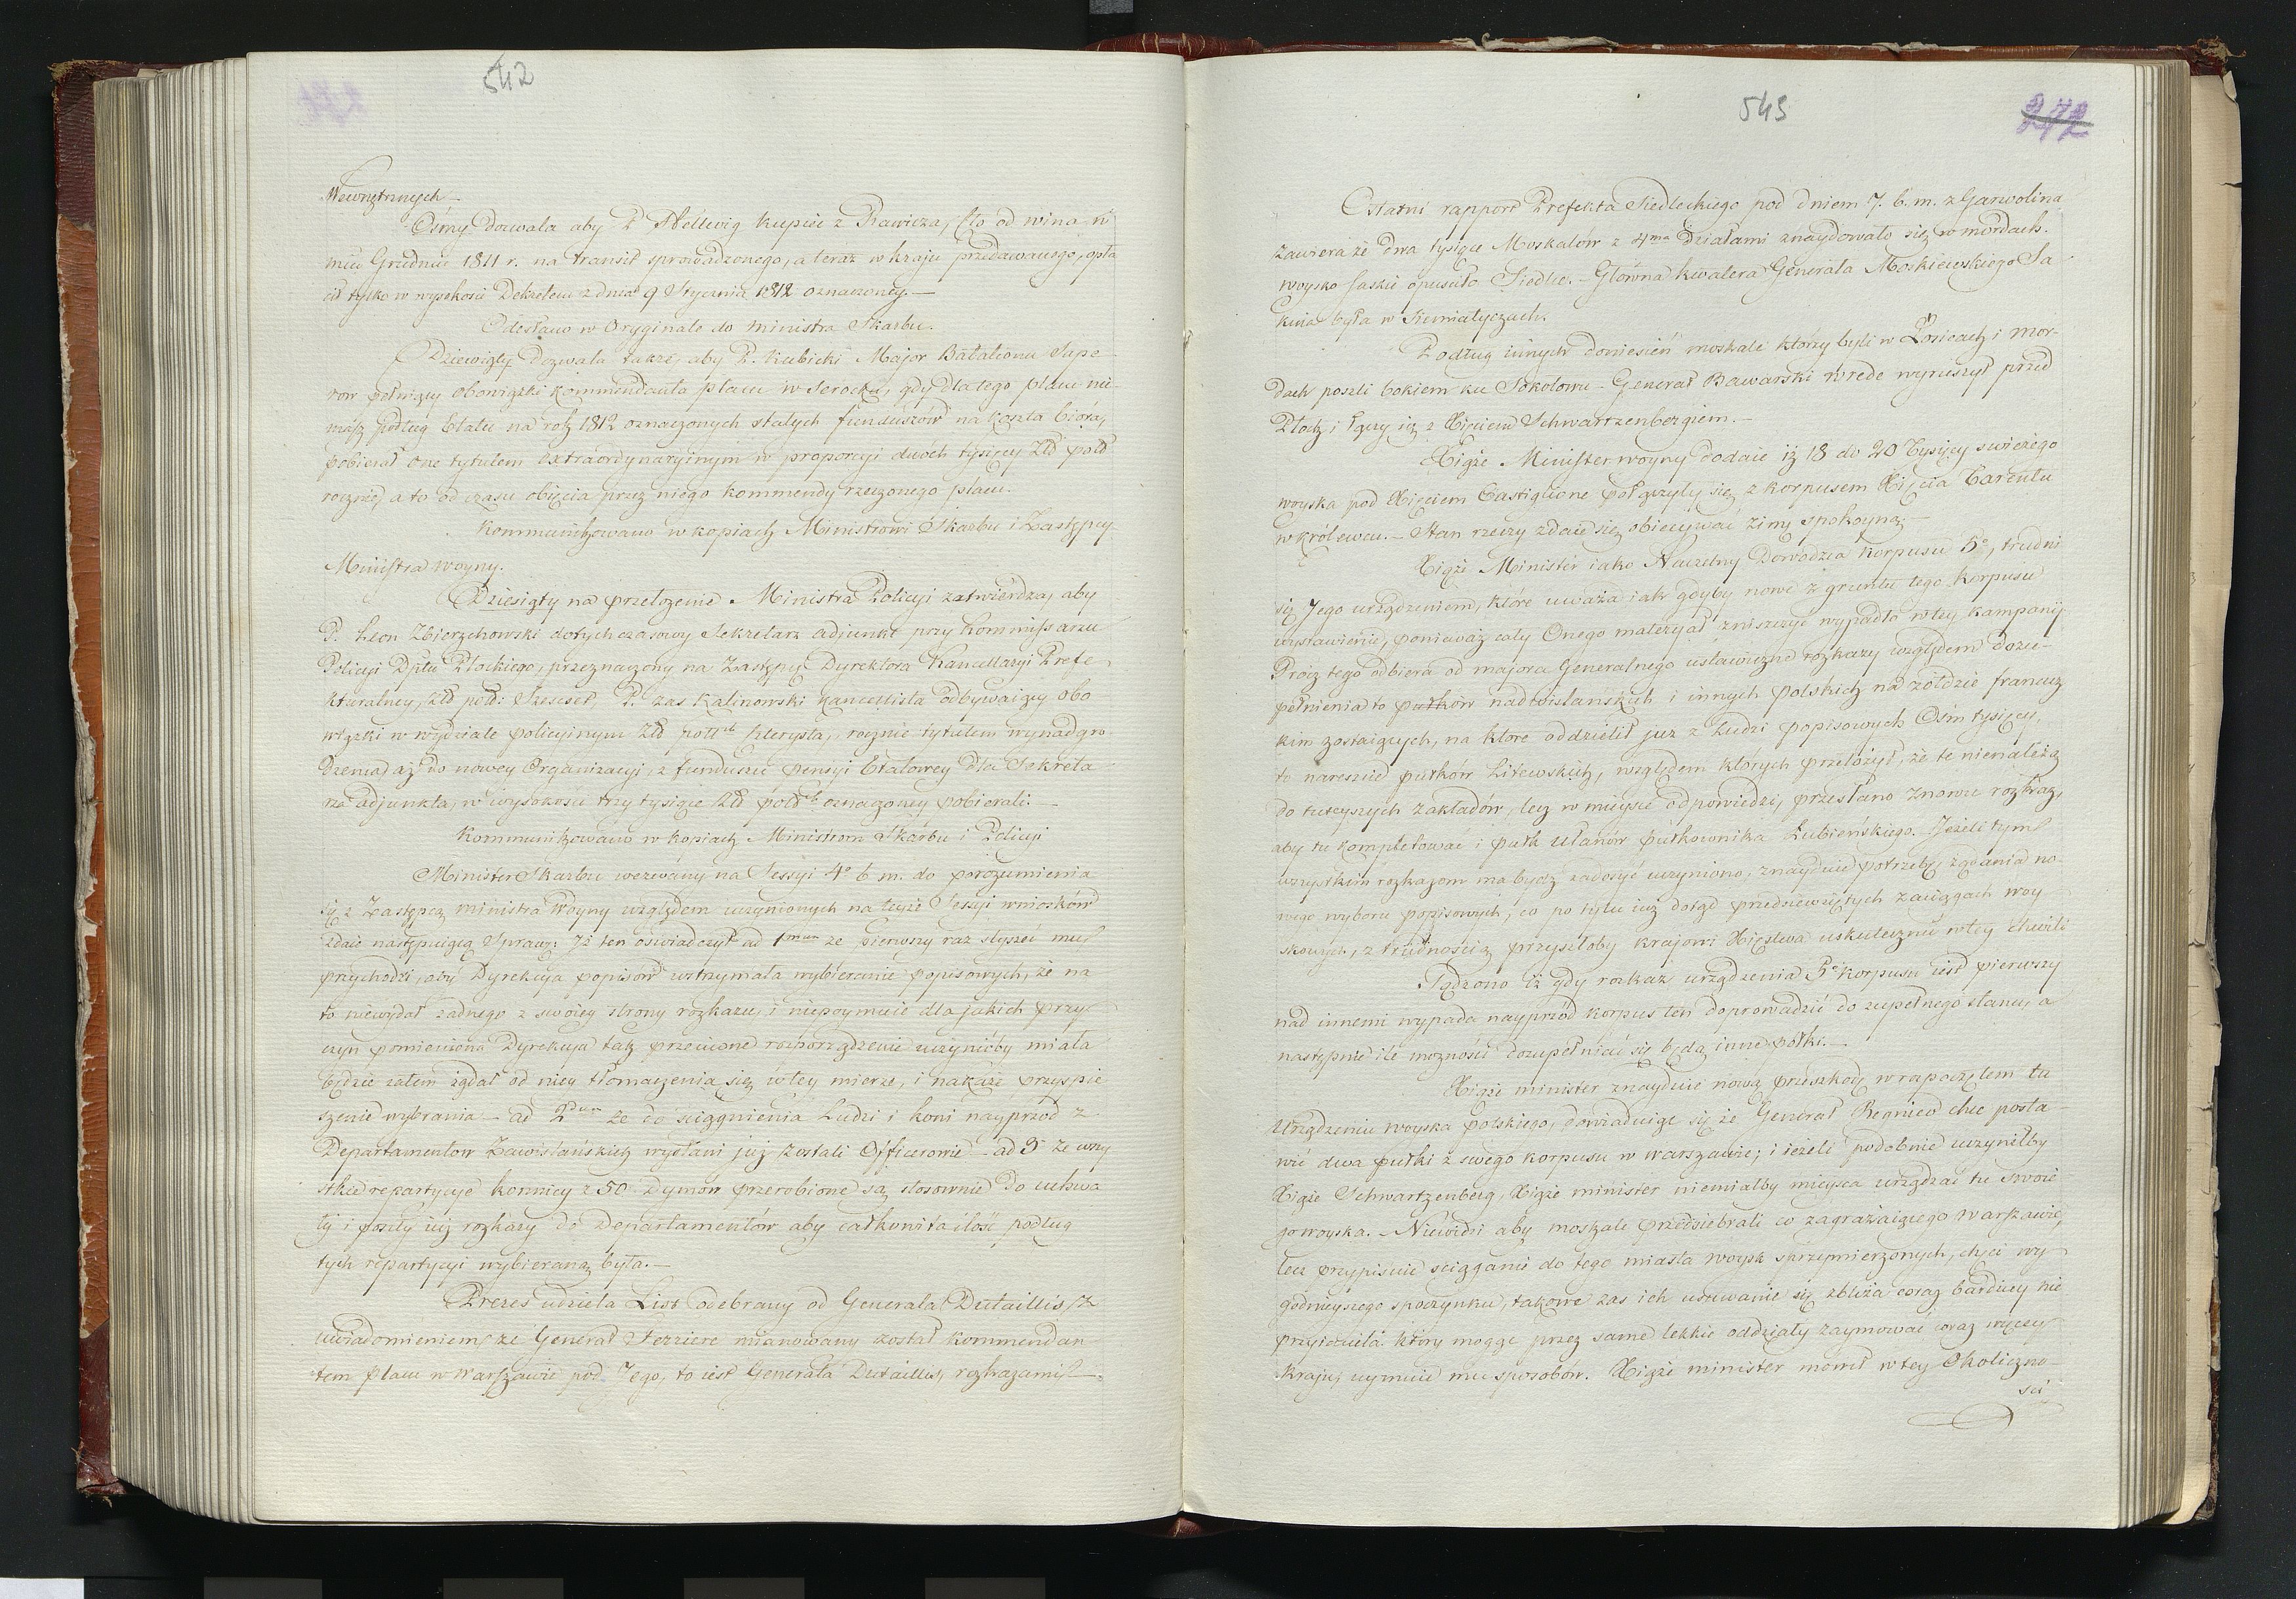 542
Wewnętrznych —
Ósmy dozwala aby P. Hellwig kupiec z Rawicza, Cło od wina w
mcu Grudniu 1811 r. na transit sprowadzonego, a teraz w kraju przedawanego, opła
cił tylko w wysokości Dekretem z dnia 9 Stycznia 1812 oznaczoney. —
Odesłano w Oryginale do Ministra Skarbu.
Dziewiąty dozwala także, aby P. Kubicki Major Batalionu Sape-
rów pełniący obowiązki kommendanta placu w Serocku, gdy dla tego placu nie
masz podług Etatu na rok 1812 oznaczonych stałych funduszów na koszta bióra,
pobierał one tytułem extraordynaryinym w proporcyi dwóch tysięcy Złł pols
rocznie, a to od czasu obięcia przez niego kommendy rzeczonego placu.
Kommunikowano w kopiach Ministrowi Skarbu i Zastępcy
Ministra woyny.
Dziesiąty na przełożenie Ministra Policyi zatwierdza, aby
P. Leon Zbierzchowski dotychczasowy Sekretarz adjunkt przy Kommissarzu
Policyi Dptu Płockiego, przeznaczony na Zastępcę Dyrektora Kancellaryi Prefe-
kturalney, Złł pols: Szescset, P. zas Kalinowski kancellista odbywaiący obo
wiązki w wydziale policyinym Złł polls czterysta, rocznie tytułem wynadgro
dzenia, aż do nowey Organizacyi, z funduszu pensyi Etatowey dla Sekreta
rza adjunkta, w wysokości trzy tysiące Złł pols oznaczoney pobierali. —
Kommunikowano w kopiach Ministrom Skarbu i Policyi
Minister Skarbu wezwany na Sessyi 4o b. m. do porozumienia
się z Zastępcą ministra Woyny względem uczynionych na teyże Sessyi wniosków
zdaie następuiącą Sprawę: Iż ten oświadczył ad 1mum że pierwszy raz słyszeć mu
przychodzi, aby Dyrekcya popisow wstrzymała wybieranie popisowych, że na
to niewydał żadnego z swoiey strony rozkazu, i niepoymuie dla jakich przy-
czyn pomieniona Dyrekcya tak przeciwne rozporządzenie uczynićby miała
będzie zatem żądał od niey tłomaczenia się w tey mierze, i nakaże przyspie
szenie wybrania — ad 2dum że do sciągnienia Ludzi i koni nayprzód z
Departamentow Zawislańskich wysłani już zostali Officerowie — ad 3 że wszy
stkie repartycye konnicy z 50 Dymów przerobione są stosownie do uchwa
ły i poszły iuż rozkazy do Departamentów aby całkowita ilość podług
tych repartycyi wybieraną była. —
Prezes udziela List odebrany od Generala Dutaillis, z
uwiadomieniem, że Generał Ferriere mianowany został kommendan
tem placu w Warszawie pod Jego, to iest Generała Dutaillis, rozkazami —
543
272
Ostatni rapport Prefekta Siedleckiego pod dniem 7. b. m. z Garwolina
zawiera że dwa tysiące Moskalów z 4ma Działami znaydowało się w mordach.
woysko saskie opusciło Siedlce. Główna kwatera Generała Moskiewskiego Sa
kina była w Siemiatyczach.
Podług innych doniesień moskale którzy byli w Łosicach i Mor-
dach poszli bokiem ku Sokołowu — Generał Bawarski Wrede wyruszył przed
Płock i łączy się z Xięciem Schwartzenbergiem. —
Xiąże Minister woyny dodaie iż 18 do 20 Tysięcy swieżego
woyska pod Xięciem Castiglione połączyły się z korpusem Xięcia Tarentu
w królewcu. — Stan rzeczy zdaie się obiecywać zimę spokoyną. —
Xiąże Minister iako Naczelny Dowodzca korpusu 5o, trudni
się Jego urządzeniem, które uważa iak gdyby nowe z gruntu tego Korpusu
wystawienie, ponieważ cały Onego materyał zniszczyć wypadło w tey kampanij
Prócz tego odbiera od majora Generalnego ustawiczne rozkazy względem dozu-
pełnienia to pułków nadwislańskich i innych polskich na żołdzie francuz
kim zostaiących, na które oddzielił już z Ludzi popisowych Osm tysięcy,
to nareszcie pułków Litewskich, względem których przełożył, że te nienależą
do tuteyszych zakładów, lecz w mieysce odpowiedzi, przesłano znowu rozkaz,
aby tu kompletować i pułk ułanów pułkownika Łubieńskiego. Jeżeli tym
wszystkim rozkazom ma bydź zadosyć uczyniono, znayduie potrzebę żądania no-
wego wyboru popisowych, co po tylu iuż dotąd przedsiewziętych zaciągach woy
skowych, z trudnością przyszłoby krajowi Xięstwa uskutecznić w tey chwili
Sądzono iż gdy rozkaz urządzenia 5o korpusu iest pierwszy
nad innemi wypada nayprzód korpus ten doprowadzić do zupełnego stanu, a
następnie ile możności dozupełniać się będą inne pułki. —
Xiąże minister znayduie nową przeszkodę w rozpoczętem tu
Urządzeniu woyska polskiego, dowiaduiąc się że Generał Regnieu chce posta-
wić dwa pułki z swego korpusu w Warszawie; i ieżeli podobnie uczyniłby
Xiąże Schwartzenberg, Xiąże minister niemiałby mieysca urządzać tu swoie
go woyska. Niewidzi aby moskale przedsiebrali co zagrażaiącego Warszawie,
lecz przypisuie sciąganie do tego miasta woysk sprzymierzonych, chęci wy
godnieyszego spoczynku, takowe zas ich usuwanie się zbliża coraz bardziey nie
przyiaciela, który mogąc przez same lekkie oddziały zaymować coraz więcey
kraju, uymuie mu sposobów. Xiąże minister mówił w tey Okoliczno
sci